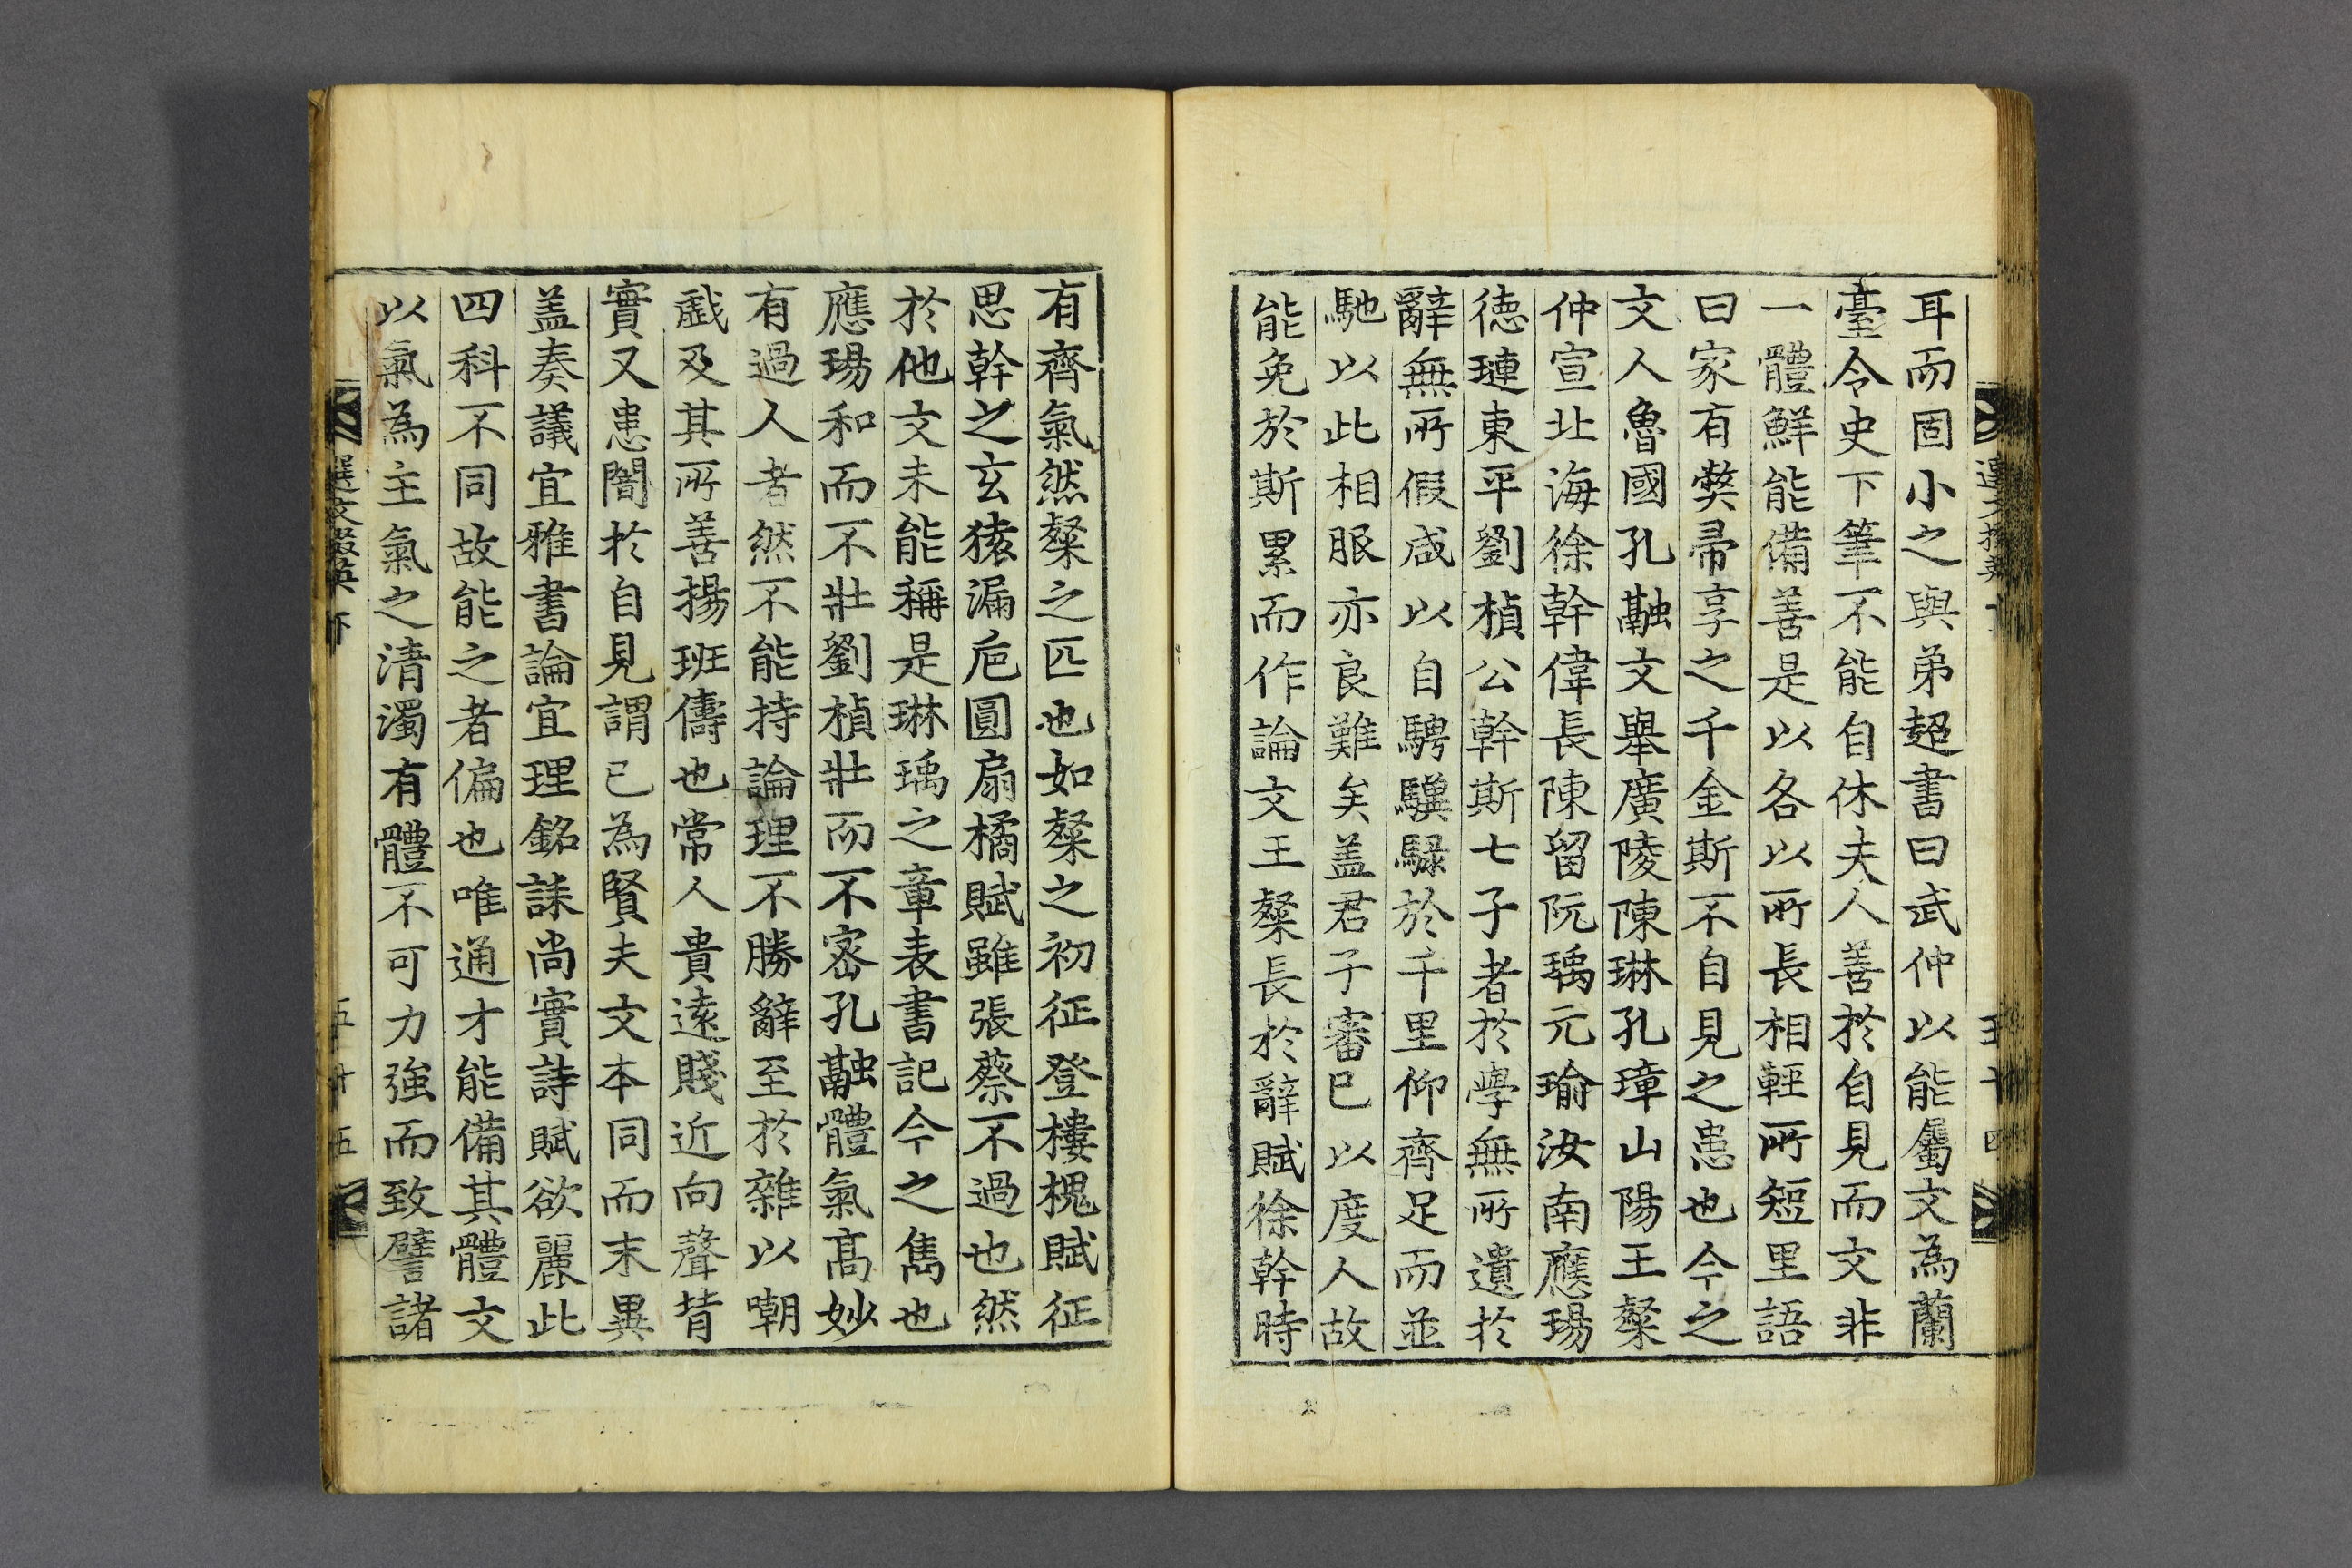 耳而固小之與弟超書曰武仲以能屬文為蘭
臺令史下筆不能自休夫人善於自見而文非
一體鮮能備善是以各以所長相輕所短里語
曰家有弊帚享之千金斯不自見之患也今之
文人魯國孔融文舉廣陵陳琳孔璋山陽王粲
仲宣北海徐幹偉長陳留阮瑀元瑜汝南應瑒
德璉東平劉楨公幹斯七子者於學無所遺於
辭無所假咸以自騁驥騄於千里仰齊足而並
馳以此相服亦良難矣盖君子審己以度人故
能免於斯累而作論文王粲長於辭賦徐幹時
有齊氣然粲之匹也如粲之初征登樓槐賦征
思幹之玄猿漏巵圓扇橘賦雖張蔡不過也然
於他文未能稱是琳瑀之章表書記今之雋也
應瑒和而不壯劉楨壯而不密孔融體氣高妙
有過人者然不能持論理不勝辭至於雜以嘲
戲及其所善揚班儔也常人貴遠賤近向聲背
實又患闇於自見謂己為賢夫文本同而末異
盖奏議宜雅書論宜理銘誄尚實詩賦欲麗此
四科不同故能之者偏也唯通才能備其體文
以氣為主氣之清濁有體不可力強而致譬諸
五十五